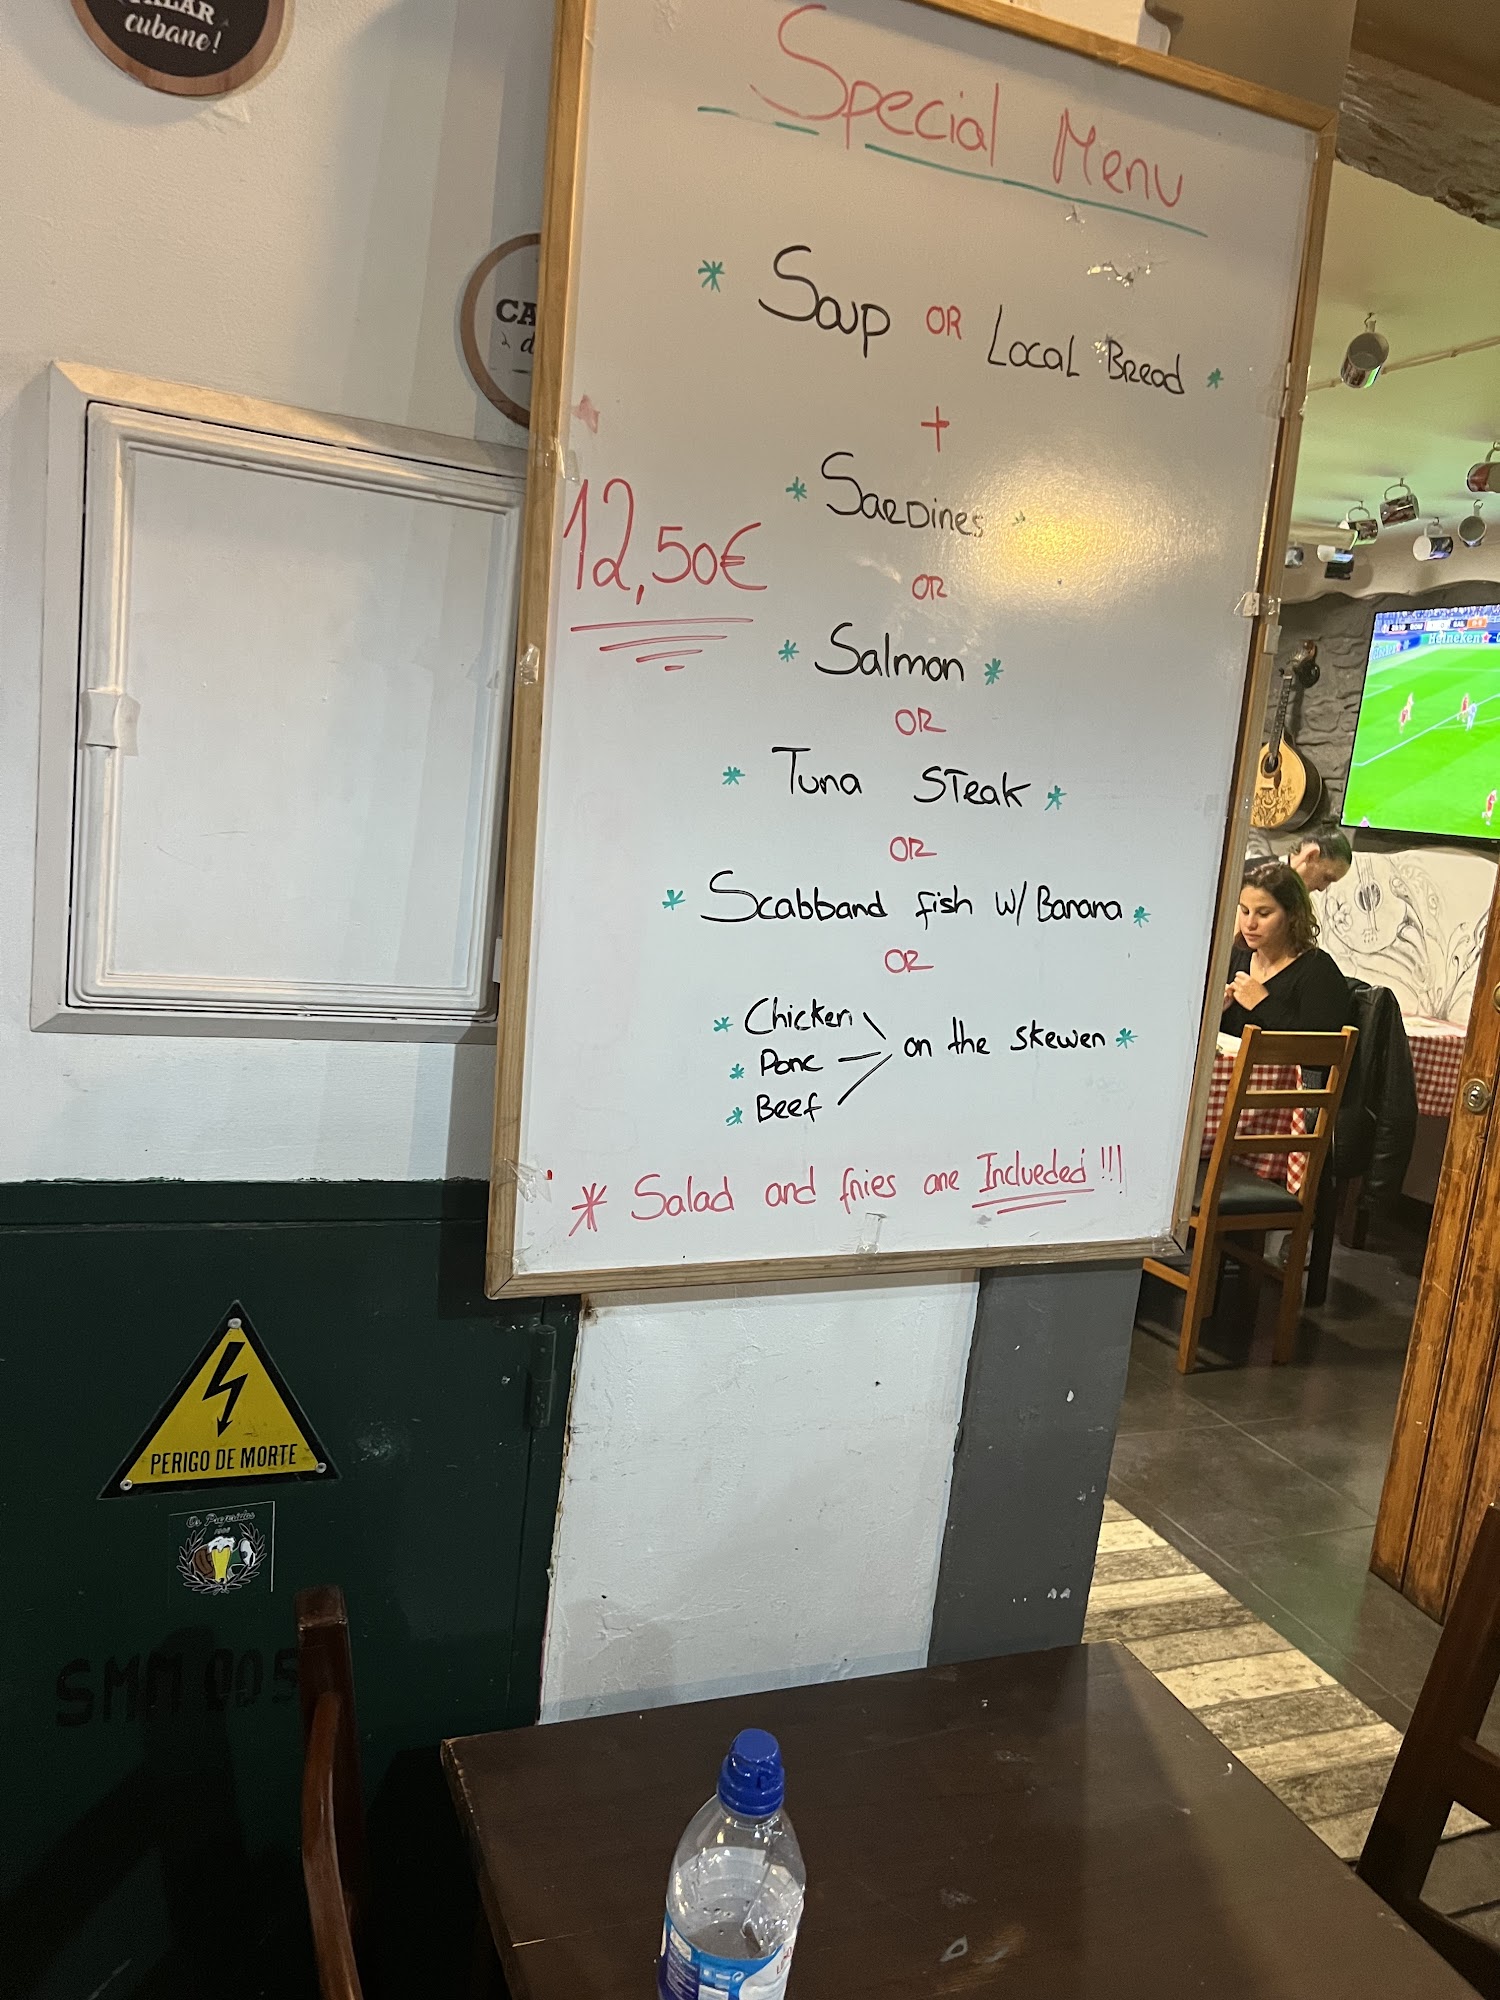 cubano!
CA
Special Menu
* Soup OR Local Bread *
+
* Sardines *
12,50€
OR
* Salmon *
OR
* Tuna Steak *
OR
* Scabbard fish w/ Banana *
OR
* Chicken
* Porc
* Beef
on the skewer *
* Salad and fries are Inclueded !!!
Heineken
PERIGO DE MORTE
Os Preferidos
SMM 005